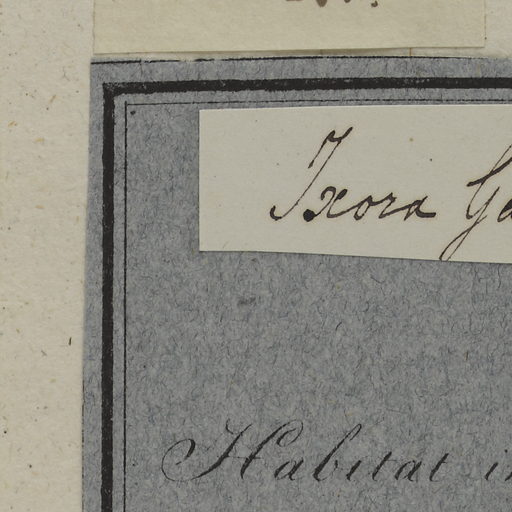 Ixora
Habitat